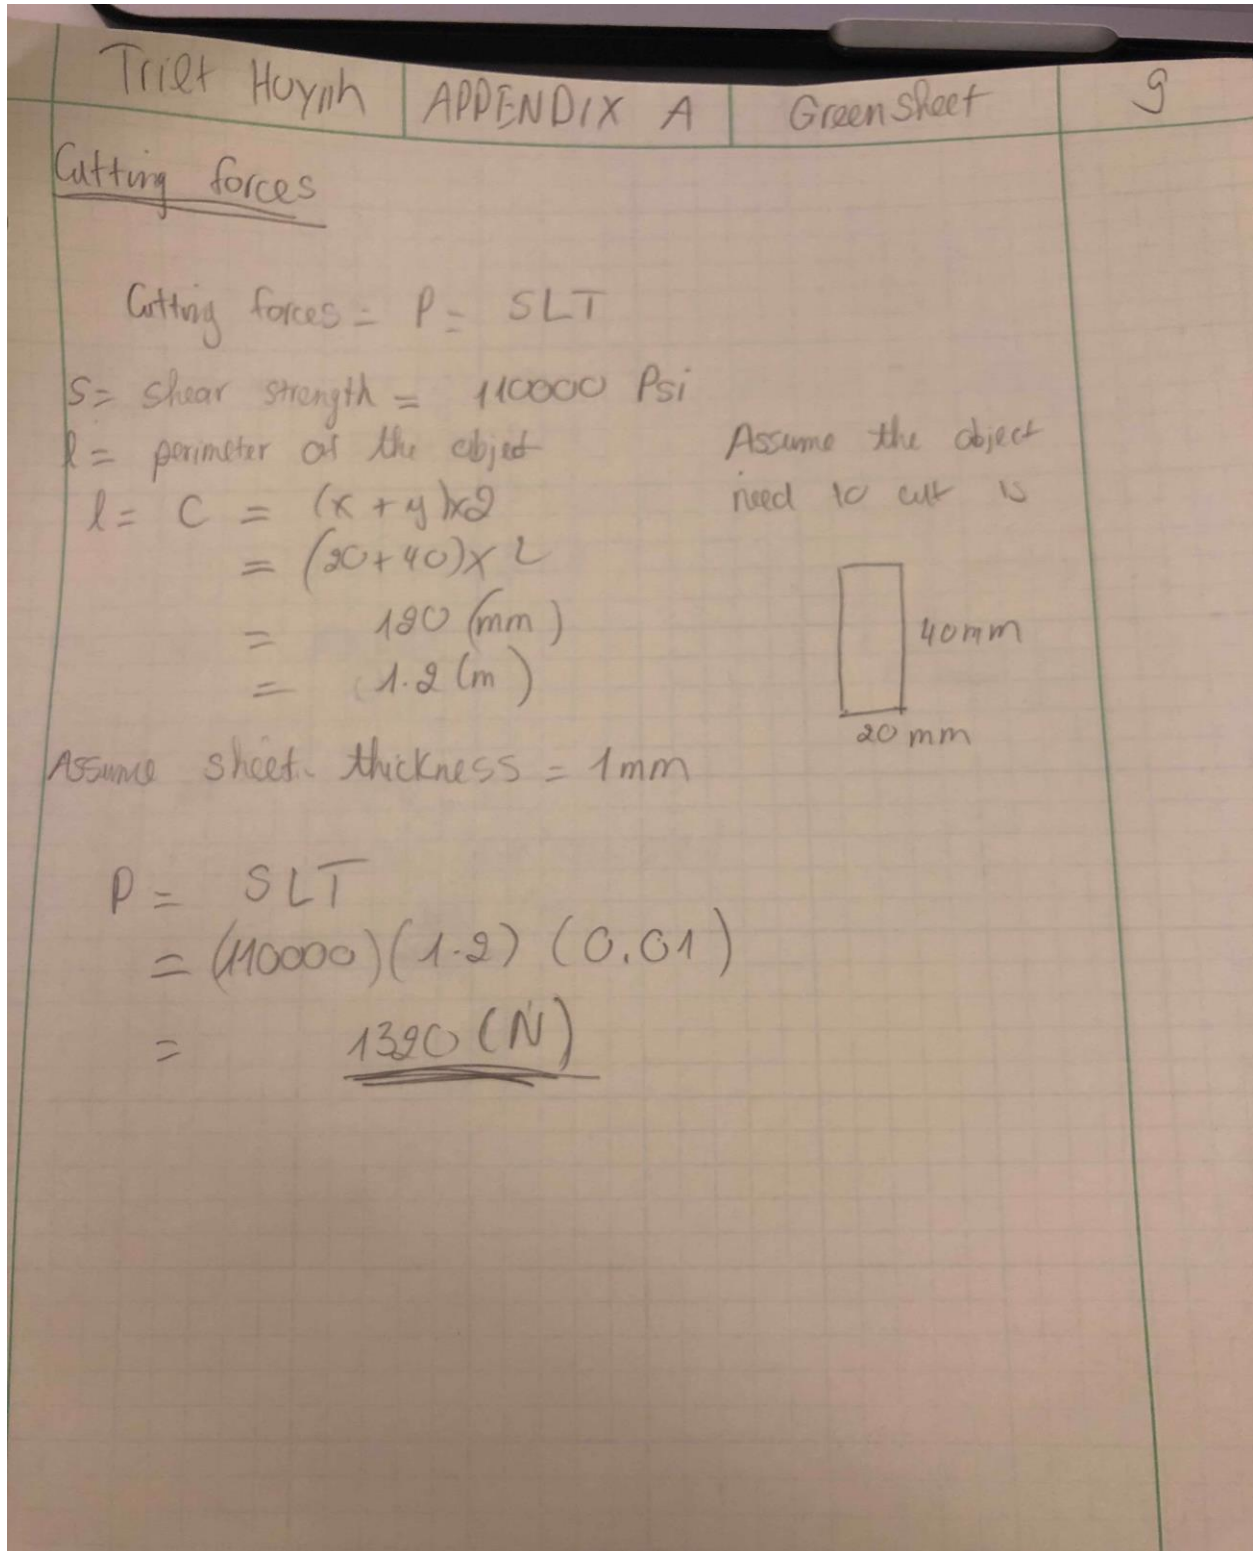 Triet Huynh APPENDIX A Green sheet 9
Cutting forces
Cutting forces = P = SLT
S = shear strength = 110000 Psi
l = perimeter of the object
Assume the object
need to cut is
l = C = (x + y)x2
= (20+40)x2
= 120 (mm)
= 1.2 (m)
40mm
20mm
Assume sheet thickness = 1mm
P = SLT
= (110000)(1.2) (0.01)
= 1320 (N)